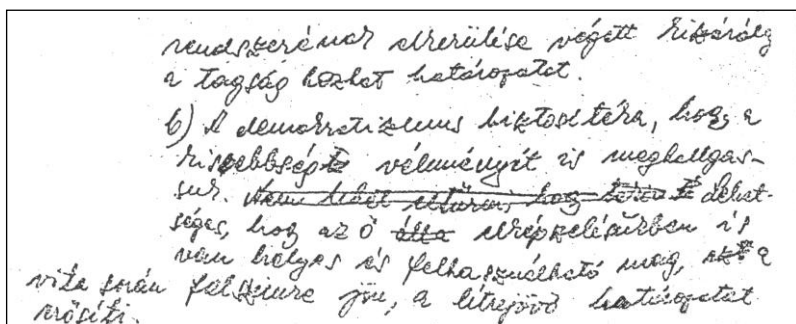 rendszerének elkerülése végett kizárólag
a tagság hozhat határozatot.
b) A demokratizmus biztositéka, hogy a
kissebbség véleményét is meghallgas-
suk. Nem lehet eltűrni, hogy Lehet-
séges, hogy az ő álta elképzelésükben is
van helyes és felhasználható mag, a
vita során felszinre jön, a létrejövő határozatot
erősiti.